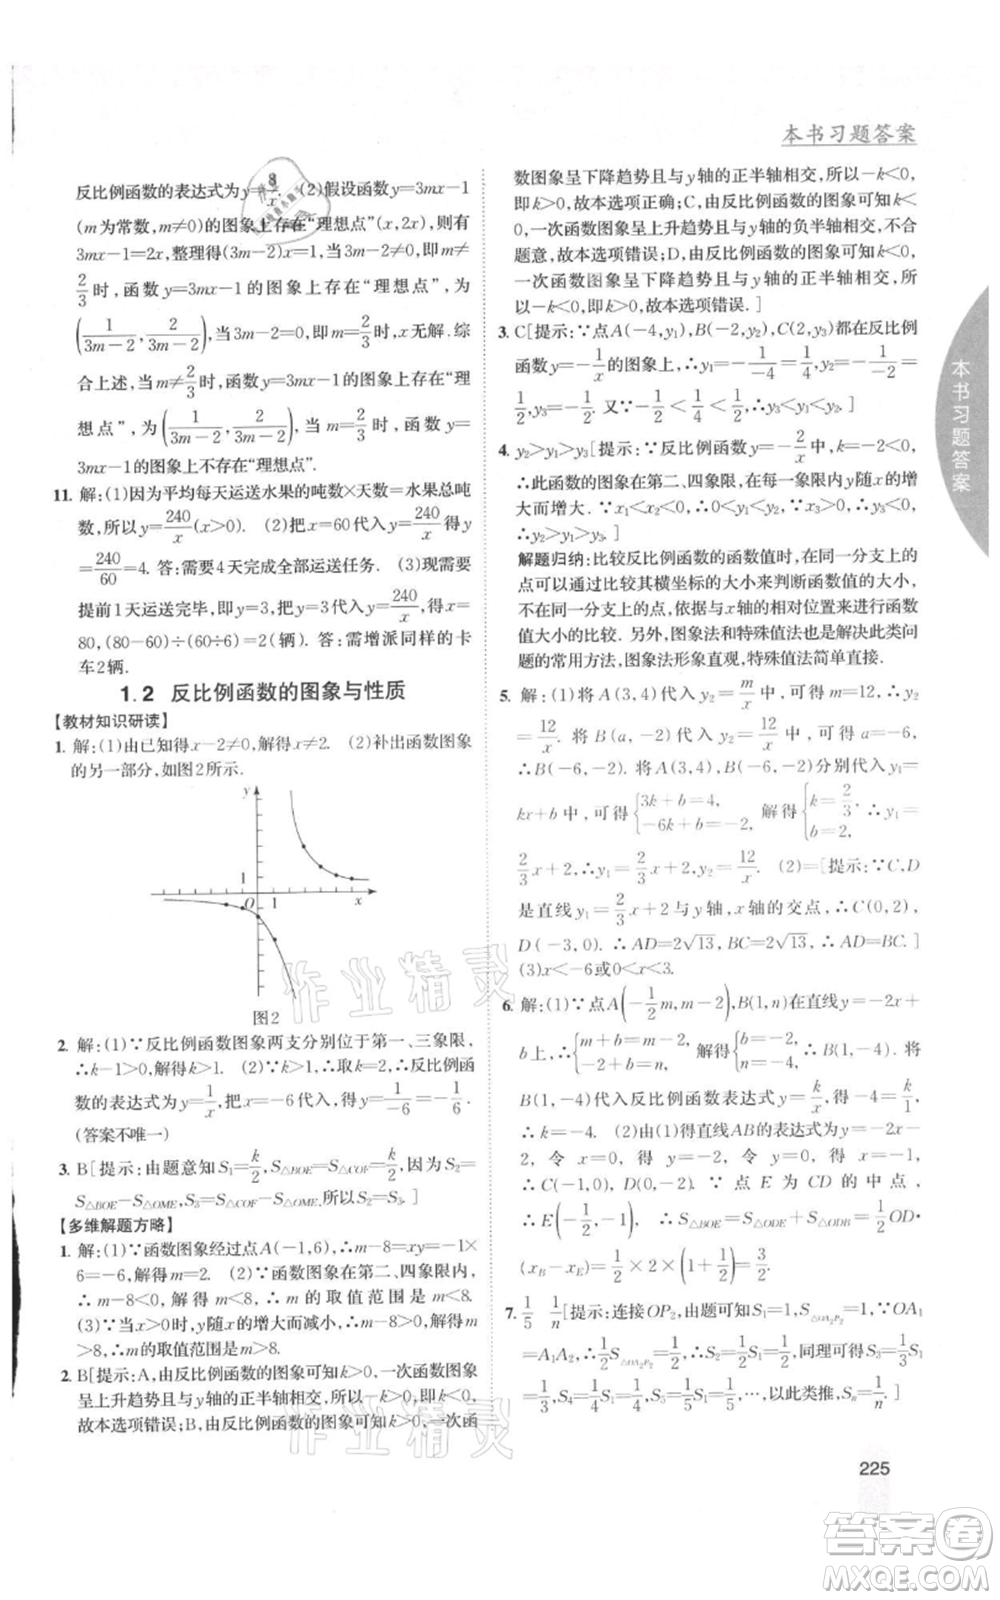 本书习题答案
反比例函数的表达式为y=8/x. (2)假设函数y=3mx-1
(m为常数,m≠0)的图象上存在“理想点”(x,2x),则有
3mx-1=2x,整理,得(3m-2)x=1.当3m-2≠0,即m≠
2/3时,函数y=3mx-1的图象上存在“理想点”,为
(1/(3m-2), 2/(3m-2));当3m-2=0,即m=2/3时,x无解.综
合上述,当m≠2/3时,函数y=3mx-1的图象上存在“理
想点”,为(1/(3m-2), 2/(3m-2));当m=2/3时,函数y=3mx-1
的图象上不存在“理想点”.
11. 解:(1)因为平均每天运送水果的吨数×天数=水果总吨
数,所以y=240/x(x>0). (2)把x=60代入y=240/x得y
=240/60=4. 答:需要4天完成全部运送任务. (3)现需要
提前1天运送完毕,即每天运送240/3吨,代入y=240/x得x=
80,(80-60)÷(60÷6)=2(辆). 答:需增派同样的卡
车2辆.
1.2 反比例函数的图象与性质
【教材知识研读】
1. 解:(1)由已知得x-2≠0,解得x≠2. (2)补出函数图象
的另一部分,如图2所示.
y
1
O 1 x
图2
2. 解:(1)∵反比例函数图象两支分别位于第一、三象限,
∴k-1>0,解得k>1. (2)∵k>1,∴取k=2,∴反比例函
数的表达式为y=1/x,把x=-6代入得y=1/-6=-1/6.
(答案不唯一)
3. B[提示:由题意知S1=k/2,S△BOE=S△COF=k/2,因为S2=
S△BOE-S△OME,S3=S△COF-S△OME,所以S2=S3.]
【多维解题方略】
1. 解:(1)∵函数图象经过点A(-1,6),∴m-8=xy=-1×
6=-6,解得m=2. (2)∵函数图象在第二、四象限内,
∴m-8<0,解得m<8,∴m的取值范围是m<8.
(3)∵当x>0时,y随x的增大而减小,∴m-8>0,解得m
>8,∴m的取值范围是m>8.
2. B[提示:A,由反比例函数的图象可知k>0,一次函数图象
呈上升趋势且与y轴的正半轴相交,所以-k>0,即k<0,故
本选项错误;B,由反比例函数的图象可知k>0,一次函
数图象呈下降趋势且与y轴的正半轴相交,所以-k>0,即
k<0,故本选项正确;C,由反比例函数的图象可知k<0,
一次函数图象呈上升趋势且与y轴的负半轴相交,所以k>0,
矛盾,故本选项错误;D,由反比例函数的图象可知k>0,
一次函数图象呈下降趋势且与y轴的正半轴相交,所以
k<0,即k<0,故本选项错误.]
3. C[提示:∵点A(-4,y1),B(-2,y2),C(2,y3)都在反比例
函数y=-1/x的图象上,∴y1=-1/-4=1/4,y2=-1/-2=
1/2,y3=-1/2. 又∵-1/2<1/4<1/2,∴y3<y1<y2.]
4. y2>y1>y3[提示:∵反比例函数y=-2/x中,k=-2<0,
∴此函数的图象在第二、四象限,在每一象限内y随x的
增大而增大.∵x1<x2<0<x3,∴0<y1<y2,y3<0,
∴y2>y1>y3.]
解题归纳:比较反比例函数的函数值时,在同一分支上的
点可以通过比较其横坐标的大小来判断函数值的大小,
不在同一分支上的点,依据与x轴的位置可以进行函数
值大小的比较. 另外,图象法和特殊值法也是解决此类问
题的常用方法,图象法形象直观,特殊值法简单直接.
5. 解:(1)将A(3,4)代入y2=m/x中,可得m=12,∴y2
=12/x. 将B(a,-2)代入y2=12/x中,可得a=-6,
∴B(-6,-2). 将A(3,4),B(-6,-2)分别代入y1=
kx+b中,可得{3k+b=4, -6k+b=-2, 解得{k=2/3, b=2, ∴y1=
2/3x+2,∴y1=2/3x+2,y2=12/x. (2)=[提示:∵C,D
是直线y1=2/3x+2与y轴,x轴的交点,∴C(0,2),
D(-3,0). ∴AD=2√13,BC=2√13,∴AD=BC.]
(3)x<-6或0<x<3.
6. 解:(1)∵点A(-1/2m,m-2),B(1,n)在直线y=-2x+
b上,∴{m+b=m-2, -2+b=n, 解得{b=-2, n=-4, ∴B(1,-4). 将
B(1,-4)代入反比例函数表达式y=k/x,得-4=k/1,
∴k=-4. (2)由(1)得直线AB的表达式为y=-2x-
2,令x=0,解得y=-2,令y=0,解得x=-1,
∴C(-1,0),D(0,-2). ∵点E为CD的中点,
∴E(-1/2,-1),∴S△BOE=S△ODE+S△ODB=1/2OD·
(xB-xE)=1/2×2×(1+1/2)=3/2.
7. 1/5 1/n[提示:连接OP2,由题可知S1=1,S△OA2P2=1,∵OA1
=A1A2,∴1/2S△OA2P2=1/2,∴S2=1/2,同理可得S3=1/3S1
=1/3,S4=1/4S1=1/4,S5=1/5S1=1/5,…,以此类推,Sn=1/n.]
本书习题答案
作业精灵
作业精灵
225
答案圈
MXQE.COM